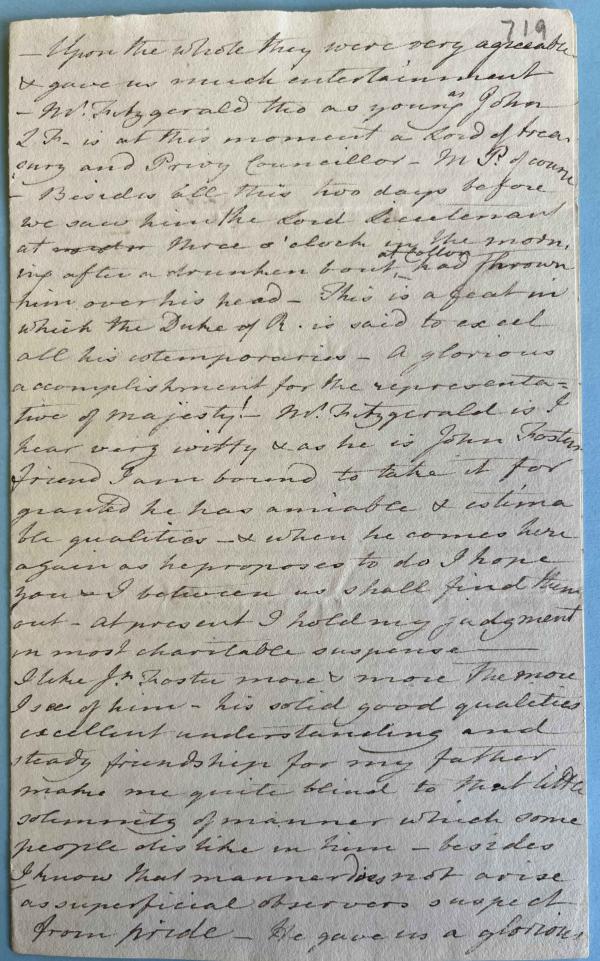 719
- Upon the whole they were very agreeable
& gave us much entertainment
- Mr. Fitzgerald tho as young as John
Fr. is at this moment a Lord of trea
sury and Privy Councillor - M P. of course
- Besides all this two days before
we saw him the Lord Lieutenant
at three o'clock in the morn.
ing after a drunken bout at Collon had thrown
him over his head - This is a feat in
which the Duke of R. is said to excel
all his cotemporaries - A glorious
accomplishment for the representa=
tive of majesty! - Mr. Fitzgerald is I
hear very witty & as he is John Fosters
friend I am bound to take it for
granted he has amiable & estima
ble qualities - & when he comes here
again as he proposes to do I hope
you & I between us shall find them
out - at present I hold my judgment
in most charitable suspense
I like Jn. Foster more & more the more
I see of him - his solid good qualities
excellent understanding and
steady friendship for my father
make me quite blind to that little
solemnity of manner which some
people dislike in him - besides
I know that manner does not arise
as superficial observers suspect
from pride - He gave us a glorious